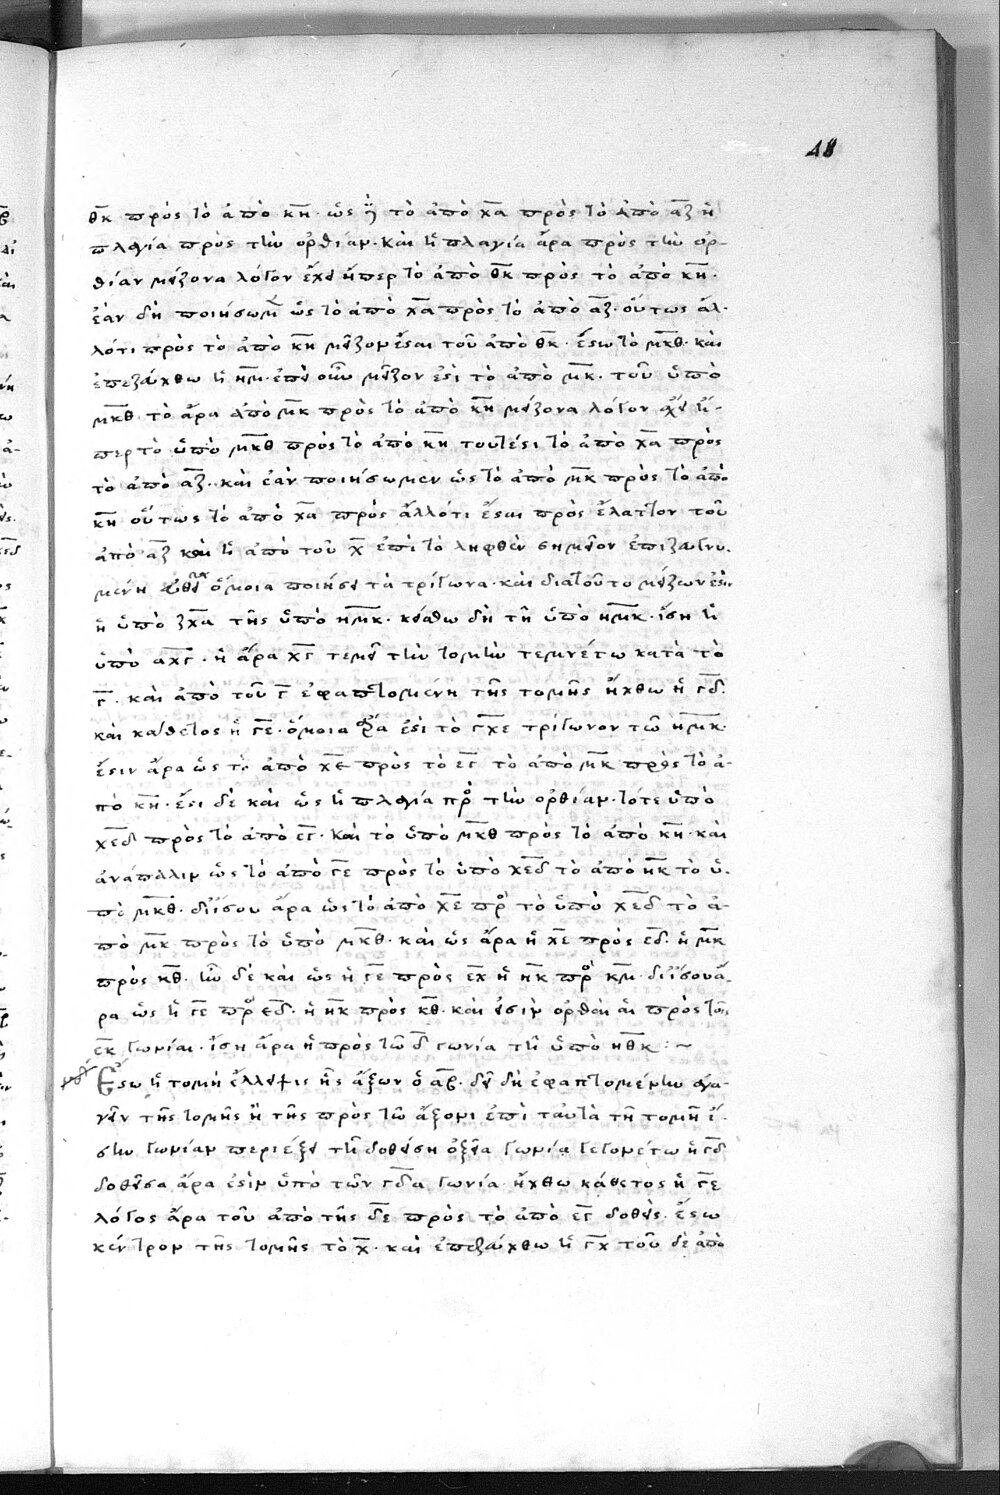 48
θκ πρὸς τὸ ἀπὸ κη· ὡς δὲ τὸ ἀπὸ χα πρὸς τὸ ἀπὸ αζ ἡ
πλαγία πρὸς τὴν ὀρθίαν· καὶ ἡ πλαγία ἄρα πρὸς τὴν ὀρ-
θίαν μείζονα λόγον ἔχει ἤπερ τὸ ἀπὸ θκ πρὸς τὸ ἀπὸ κη·
ἐὰν δὴ ποιήσωμεν ὡς τὸ ἀπὸ χα πρὸς τὸ ἀπὸ αζ· οὕτως ἄλ-
λό τι πρὸς τὸ ἀπὸ κη μεῖζον ἔσται τοῦ ἀπὸ θκ· ἔστω τὸ μκθ· καὶ
ἐπεζεύχθω ἡ ημ· ἐπεὶ οὖν μεῖζον ἐστὶ τὸ ἀπὸ μκ· τοῦ ὑπὸ
μκθ· τὸ ἄρα ἀπὸ μκ πρὸς τὸ ἀπὸ κη μείζονα λόγον ἔχει ἤ-
περ τὸ ὑπὸ μκθ πρὸς τὸ ἀπὸ κη τουτέστι τὸ ἀπὸ χα πρὸς
τὸ ἀπὸ αζ· καὶ ἐὰν ποιήσωμεν ὡς τὸ ἀπὸ μκ πρὸς τὸ ἀπὸ
κη οὕτως τὸ ἀπὸ χα πρὸς ἄλλό τι ἔσται πρὸς ἔλαττον τοῦ
ἀπὸ αζ καὶ ἡ ἀπὸ τοῦ χ ἐπὶ τὸ ληφθὲν σημεῖον ἐπιζευγνυ-
μένη ὅμοια ποιήσει τὰ τρίγωνα· καὶ διὰ τοῦτο μείζων ἐστὶν
ἡ ὑπὸ ζχα τῆς ὑπὸ ημκ· κείσθω δὴ τῆ ὑπὸ ημκ· ἴση ἡ
ὑπὸ αχγ· ἡ ἄρα χγ τεμεῖ τὴν τομὴν τεμνέτω κατὰ τὸ
γ· καὶ ἀπὸ τοῦ γ ἐφαπτομένη τῆς τομῆς ἤχθω ἡ γδ·
καὶ κάθετος ἡ γε· ὅμοια ἄρα ἐστὶ τὸ γχε τρίγωνον τῶ ημκ·
ἔστιν ἄρα ὡς τὸ ἀπὸ χε πρὸς τὸ εγ τὸ ἀπὸ μκ πρὸς τὸ ἀ-
πὸ κη· ἔστι δὲ καὶ ὡς ἡ πλαγία πρὸς τὴν ὀρθίαν· τό τε ὑπὸ
χεδ πρὸς τὸ ἀπὸ εγ· καὶ τὸ ὑπὸ μκθ πρὸς τὸ ἀπὸ κη· καὶ
ἀνάπαλιν ὡς τὸ ἀπὸ γε πρὸς τὸ ὑπὸ χεδ τὸ ἀπὸ ηκ τὸ ὑ-
πὸ μκθ· διίσου ἄρα ὡς τὸ ἀπὸ χε πρὸς τὸ ὑπὸ χεδ τὸ ἀ-
πὸ μκ πρὸς τὸ ὑπὸ μκθ· καὶ ὡς ἄρα ἡ χε πρὸς εδ· ἡ μκ
πρὸς κθ· ἦν δὲ καὶ ὡς ἡ γε πρὸς εχ ἡ ηκ πρὸς κμ· διίσου ἄ-
ρα ὡς ἡ γε πρὸς εδ· ἡ ηκ πρὸς κθ· καὶ εἰσὶν ὀρθαὶ αἱ πρὸς τοῖς
εκ γωνίαι· ἴση ἄρα ἡ πρὸς τῶ δ γωνία τῆ ὑπὸ ηθκ :~
Ἔστω ἡ τομὴ ἔλλειψις ἧς ἄξων ὁ αβ· δεῖ δὴ ἐφαπτομένην ἀγα-
γεῖν τῆς τομῆς ἣ τῆς πρὸς τῶ ἄξονι ἐπὶ ταὐτὰ τῆ τομῆ ἴ-
σην γωνίαν περιέξει τῆ δοθείση ὀξεῖα γωνία γεγονέτω ἡ γδ
δοθεῖσα ἄρα ἐστὶν ὑπὸ τῶν γδα γωνία· ἤχθω κάθετος ἡ γε
λόγος ἄρα τοῦ ἀπὸ τῆς δε πρὸς τὸ ἀπὸ εγ δοθείς· ἔστω
κέντρον τῆς τομῆς τὸ χ· καὶ ἐπεζεύχθω ἡ γχ τοῦ δὲ ἀπὸ